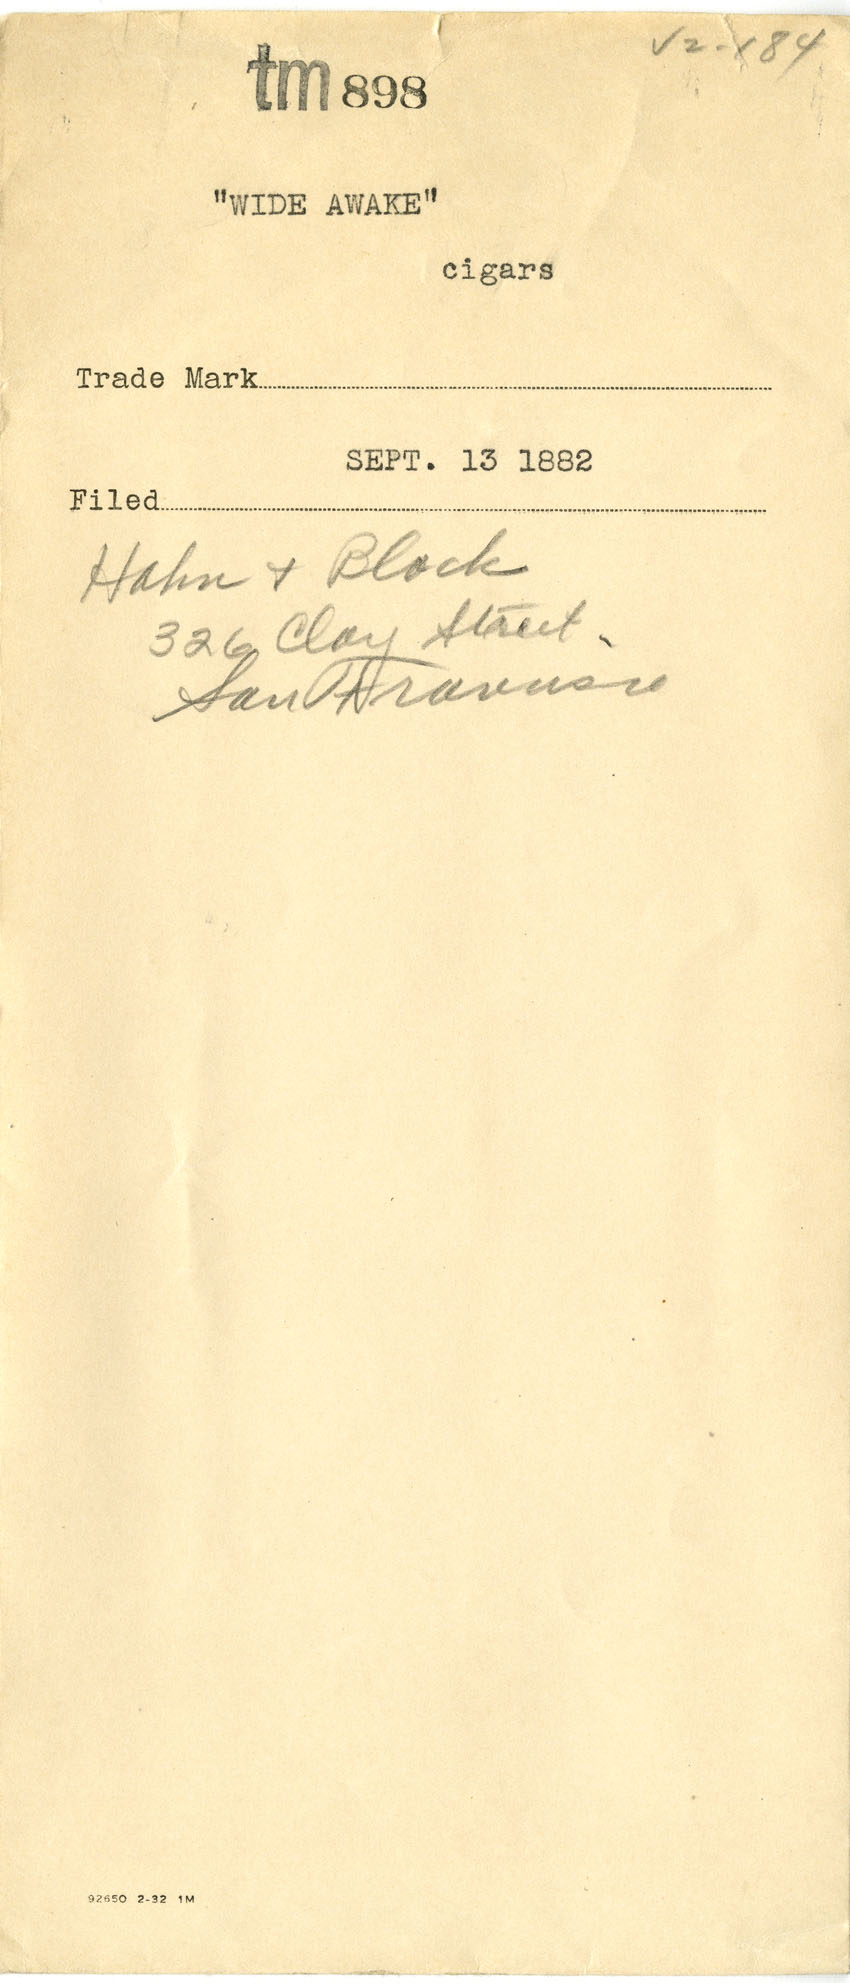 √2-184
tm 898
"WIDE AWAKE"
cigars
Trade Mark
SEPT. 13 1882
Filed
Hahn + Block
326 Clay Street
San Francisco
92650 2-32 1M